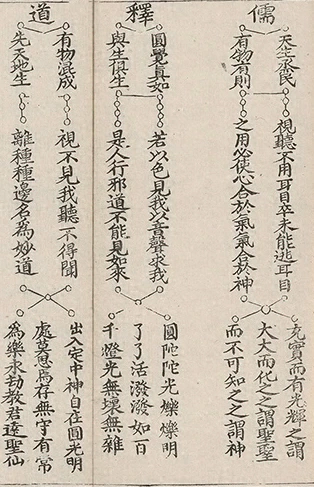 儒
天生烝民
有物有則
視聽不用耳目卒未能逃耳目
之用必使心合於氣氣合於神
充實而有光輝之謂
大大而化之之謂聖聖
而不可知之之謂神
釋
圓覺真如
與生俱生
若以色見我以音聲求我
是人行邪道不能見如來
圓陀陀光爍爍明
了了活潑潑如百
千燈光無壞無雜
道
有物混成
先天地生
視不見我聽不得聞
離種種邊名為妙道
出入定中神自在圓光明
處莫思存無守有常
為樂永劫教君達聖仙